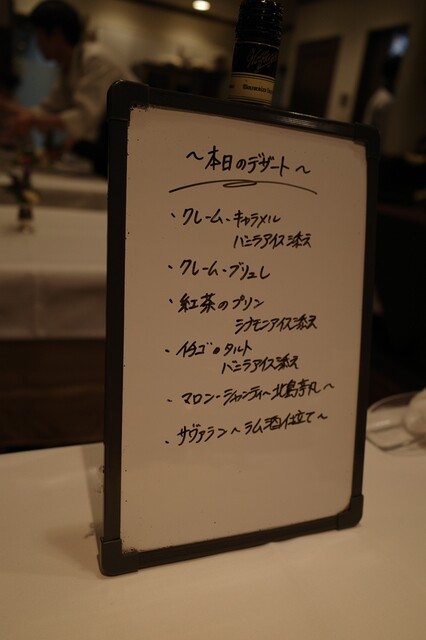 ～本日のデザート～
・クレーム・キャラメル
バニラアイス添え
・クレーム・ブリュレ
・紅茶のプリン
シナモンアイス添え
・イチゴのタルト
バニラアイス添え
・マロン・シャンティ～北島亭丸～
・サヴァラン～ラム酒仕立て～